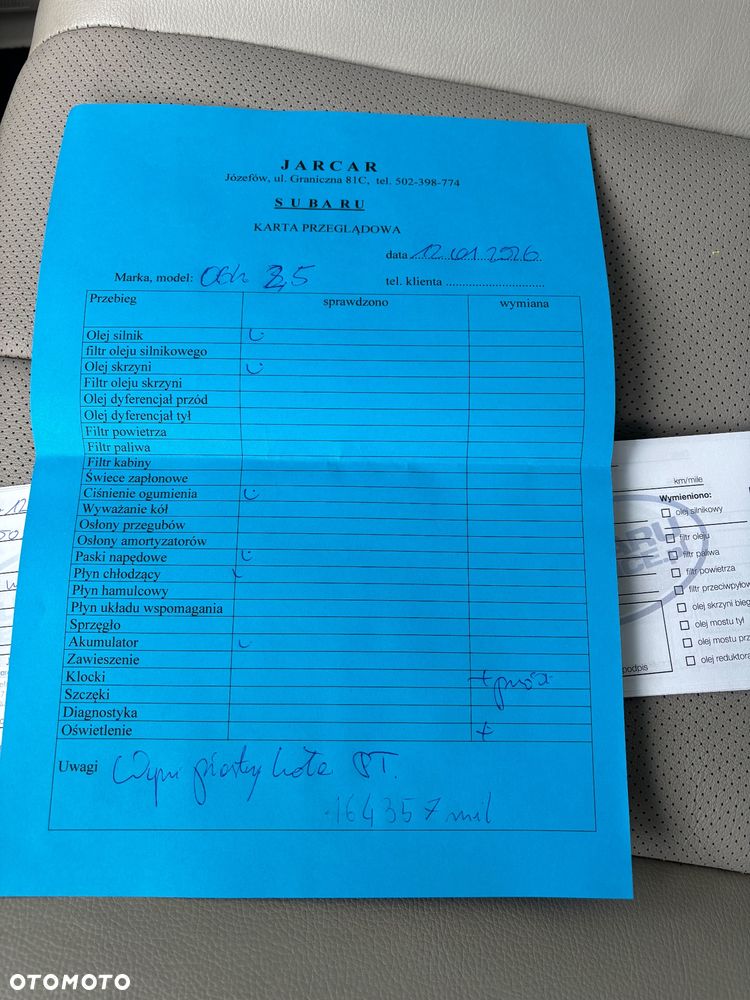 JARCAR
Józefów, ul. Graniczna 81C, tel. 502-398-774
SUBARU
KARTA PRZEGLĄDOWA
data 12.01.2026
Marka, model: Otb 2,5 tel. klienta
Przebieg sprawdzono wymiana
Olej silnik
filtr oleju silnikowego
Olej skrzyni
Filtr oleju skrzyni
Olej dyferencjał przód
Olej dyferencjał tył
Filtr powietrza
Filtr paliwa
Filtr kabiny
Świece zapłonowe
Ciśnienie ogumienia
Wyważanie kół
Osłony przegubów
Osłony amortyzatorów
Paski napędowe
Płyn chłodzący
Płyn hamulcowy
Płyn układu wspomagania
Sprzęgło
Akumulator
Zawieszenie
Klocki + przód
Szczęki
Diagnostyka
Oświetlenie +
Uwagi Wym piasty koła PT.
164357 mil
km/mile
Wymieniono:
olej silnikowy
filtr oleju
filtr paliwa
filtr powietrza
filtr przeciwpyło
olej skrzyni bieg
olej mostu tył
olej mostu prz
olej reduktora
podpis
OTOMOTO